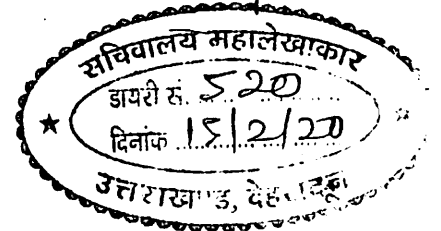 सचिवालय महालेखाकार
डायरी सं. 520
दिनांक 15/2/20
उत्तराखण्ड, देहरादून